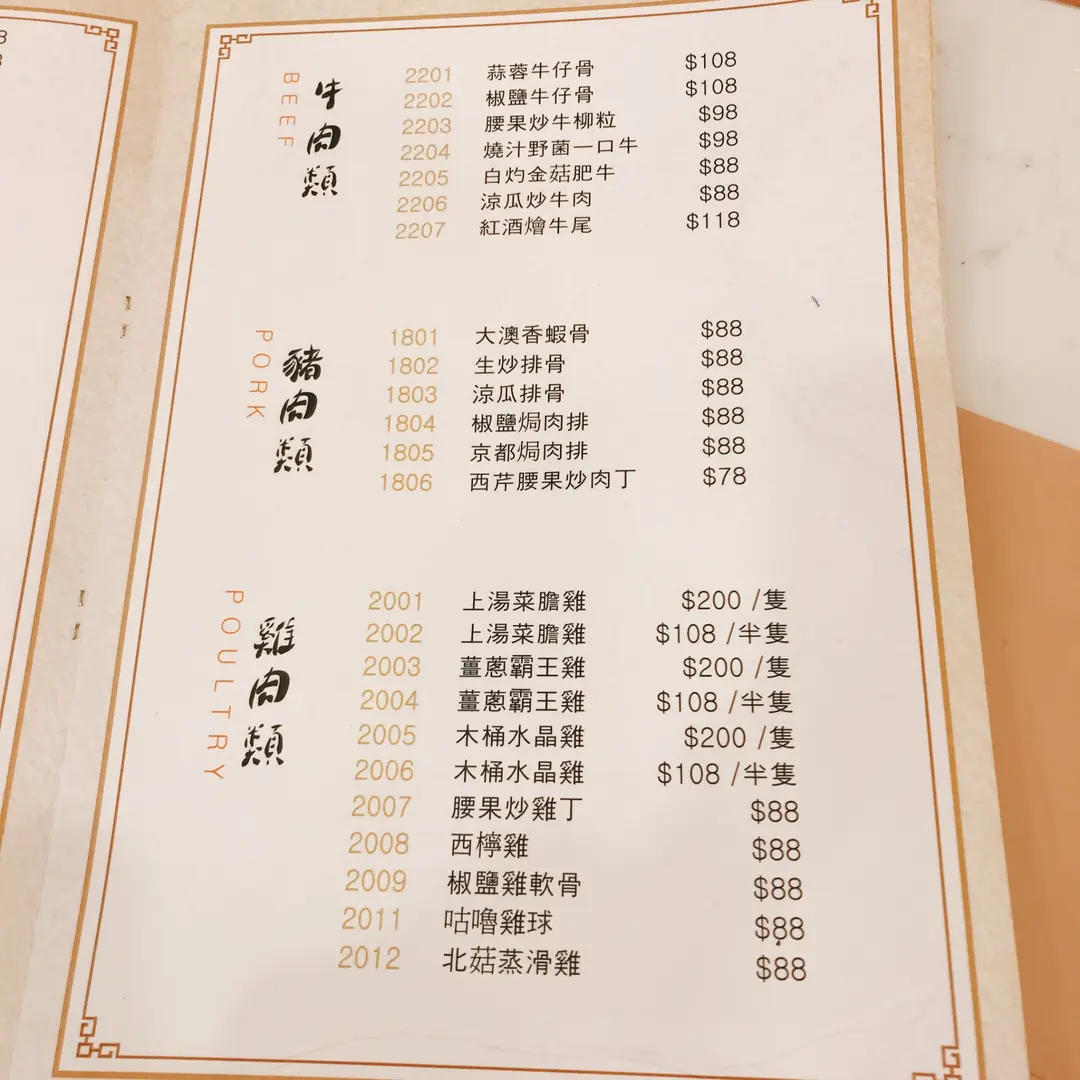 牛肉類
BEEF
2201 蒜蓉牛仔骨 $108
2202 椒鹽牛仔骨 $108
2203 腰果炒牛柳粒 $98
2204 燒汁野菌一口牛 $98
2205 白灼金菇肥牛 $88
2206 涼瓜炒牛肉 $88
2207 紅酒燴牛尾 $118
豬肉類
PORK
1801 大澳香蝦骨 $88
1802 生炒排骨 $88
1803 涼瓜排骨 $88
1804 椒鹽焗肉排 $88
1805 京都焗肉排 $88
1806 西芹腰果炒肉丁 $78
雞肉類
POULTRY
2001 上湯菜膽雞 $200 /隻
2002 上湯菜膽雞 $108 /半隻
2003 薑蔥霸王雞 $200 /隻
2004 薑蔥霸王雞 $108 /半隻
2005 木桶水晶雞 $200 /隻
2006 木桶水晶雞 $108 /半隻
2007 腰果炒雞丁 $88
2008 西檸雞 $88
2009 椒鹽雞軟骨 $88
2011 咕嚕雞球 $88
2012 北菇蒸滑雞 $88